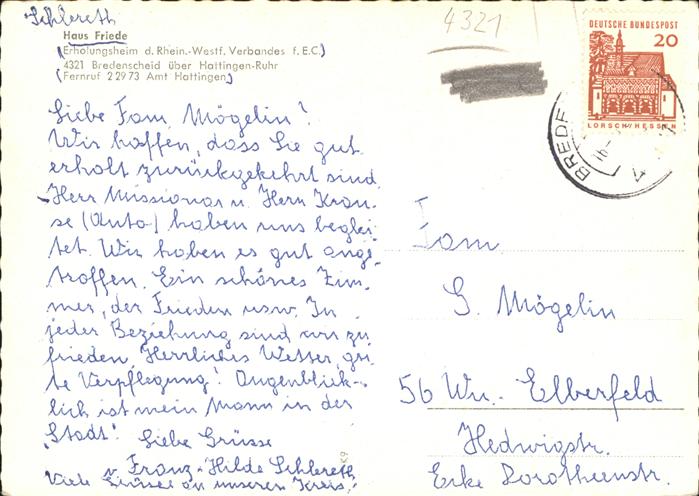 Schlereth
Haus Friede
(Erholungsheim d. Rhein.-Westf. Verbandes f. E.C.)
4321 Bredenscheid über Hattingen-Ruhr
(Fernruf 2 29 73 Amt Hattingen)
4321
DEUTSCHE BUNDESPOST
20
LORSCH/HESSEN
BREDE
Liebe Fam. Mögelin!
Wir hoffen, dass Sie gut
erholt zurückgekehrt sind.
Herr Missionar u. Herr Krau-
se (Auto) haben uns beglei-
tet. Wir haben es gut ange-
troffen. Ein schönes Zim-
mer, der Frieden usw. In
jeder Beziehung sind wir zu
frieden. Herrliches Wetter, gu-
te Verpflegung! Augenblick-
lich ist mein Mann in der
"Stadt".
Liebe Grüsse
Franz-Hilde Schlereth
Viele Grüsse an unseren Kreis!
K9
Fam.
G. Mögelin
56 Wu.-Elberfeld
Hedwigstr.
Ecke Dorotheenstr.